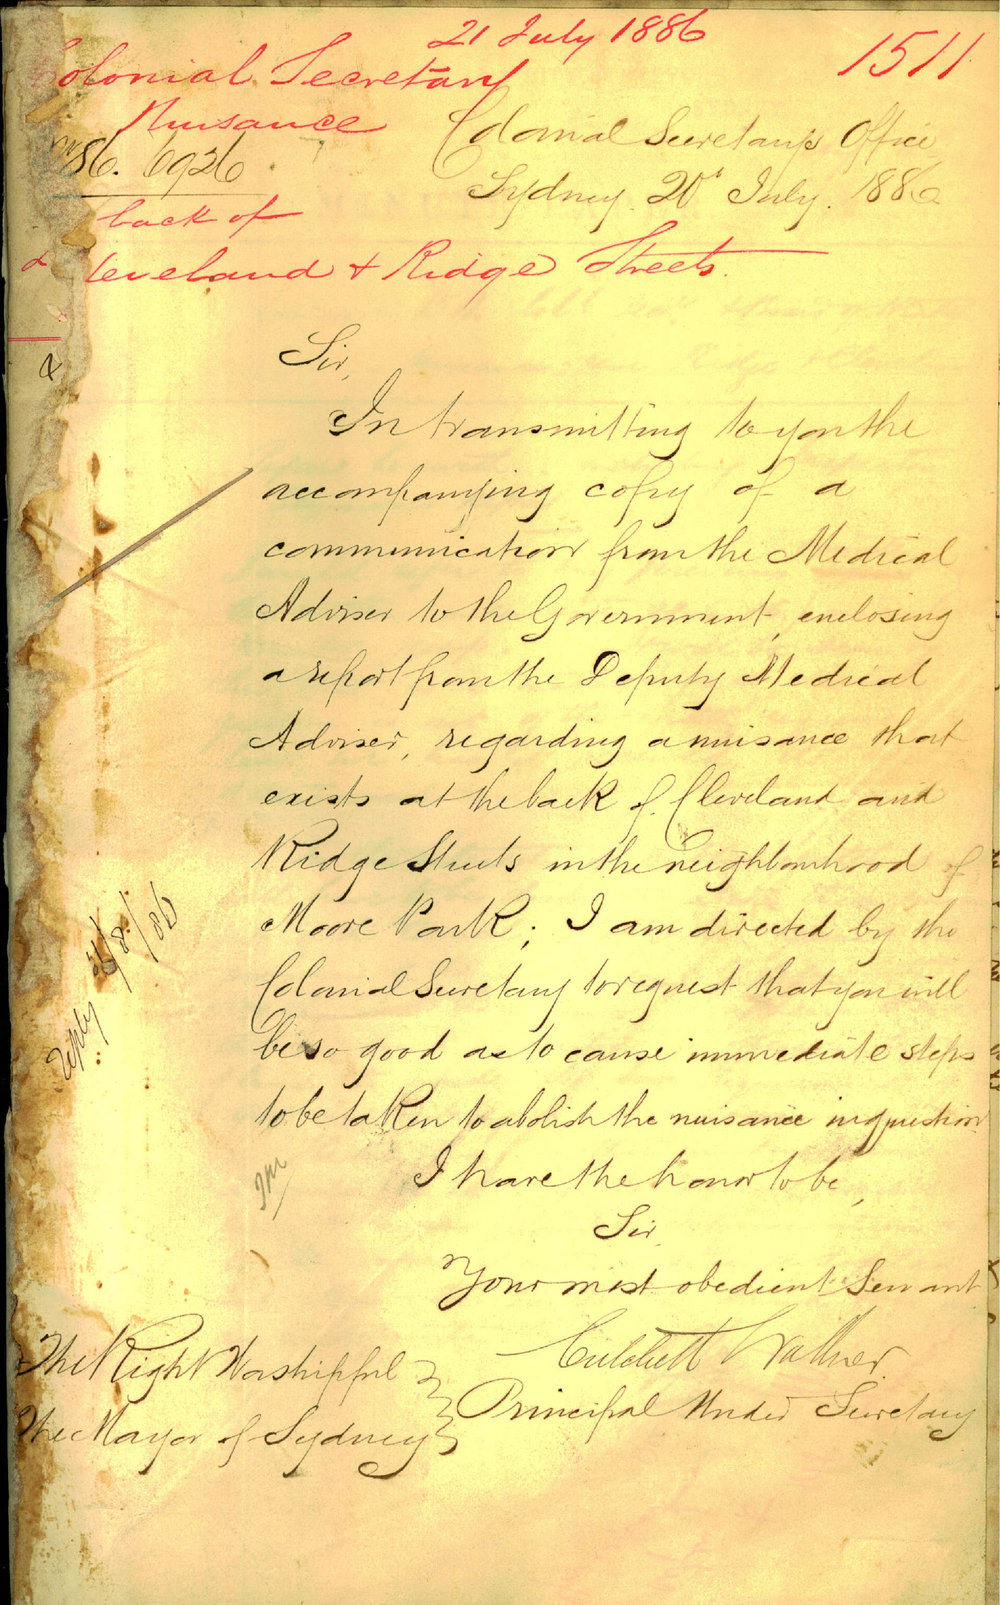 21 July 1886
1511
Colonial Secretary
Nuisance
86. 6926
back of
Cleveland & Ridge Streets.
Colonial Secretary's Office
Sydney 20th July. 1886
Sir,
In transmitting to you the
accompanying copy of a
communication from the Medical
Adviser to the Government, enclosing
a report from the Deputy Medical
Adviser, regarding a nuisance that
exists at the back of Cleveland and
Ridge Streets in the neighbourhood of
Moore Park; I am directed by the
Colonial Secretary to request that you will
be so good as to cause immediate steps
to be taken to abolish the nuisance in question
I have the honor to be,
Sir
Your most obedient Servant
Critchett Walker
Principal Under Secretary
The Right Worshipful
The Mayor of Sydney
Reply /8/86